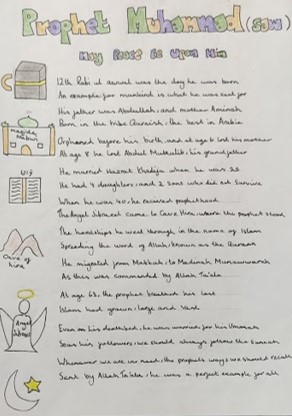 Prophet Muhammad (saw)
May Peace be Upon Him
12th Rabi ul awwal was the day he was born
An example for mankind is what he was sent for
His father was Abdullah, and mother Aminah
Born in the tribe Quraish, the best in Arabia
Masjid e Nabwi
Orphaned before his birth, and at age 6 lost his mother
At age 8 he lost Abdul Muttalib, his grandfather
He married Hazrat Khadija when he was 25
He had 4 daughters, and 2 sons who did not survive
When he was 40, he received prophethood
The Angel Jibraeel came to Cave Hira, where the prophet stood
The hardships he went through in the name of Islam
Spreading the word of Allah, known as the Quraan
Cave of hira
He migrated from Makkah, to Madinah Munawwarah
As this was commanded by Allah Ta'ala
At age 63, the prophet breathed his last
Islam had grown, large and vast
Angel Jibraeel
Even on his deathbed, he was worried for his Ummah
So as his followers, we should always follow the Sunnah
Whenever we are in need, the prophets ways we should recall
Sent by Allah Ta'ala, he was a perfect example for all